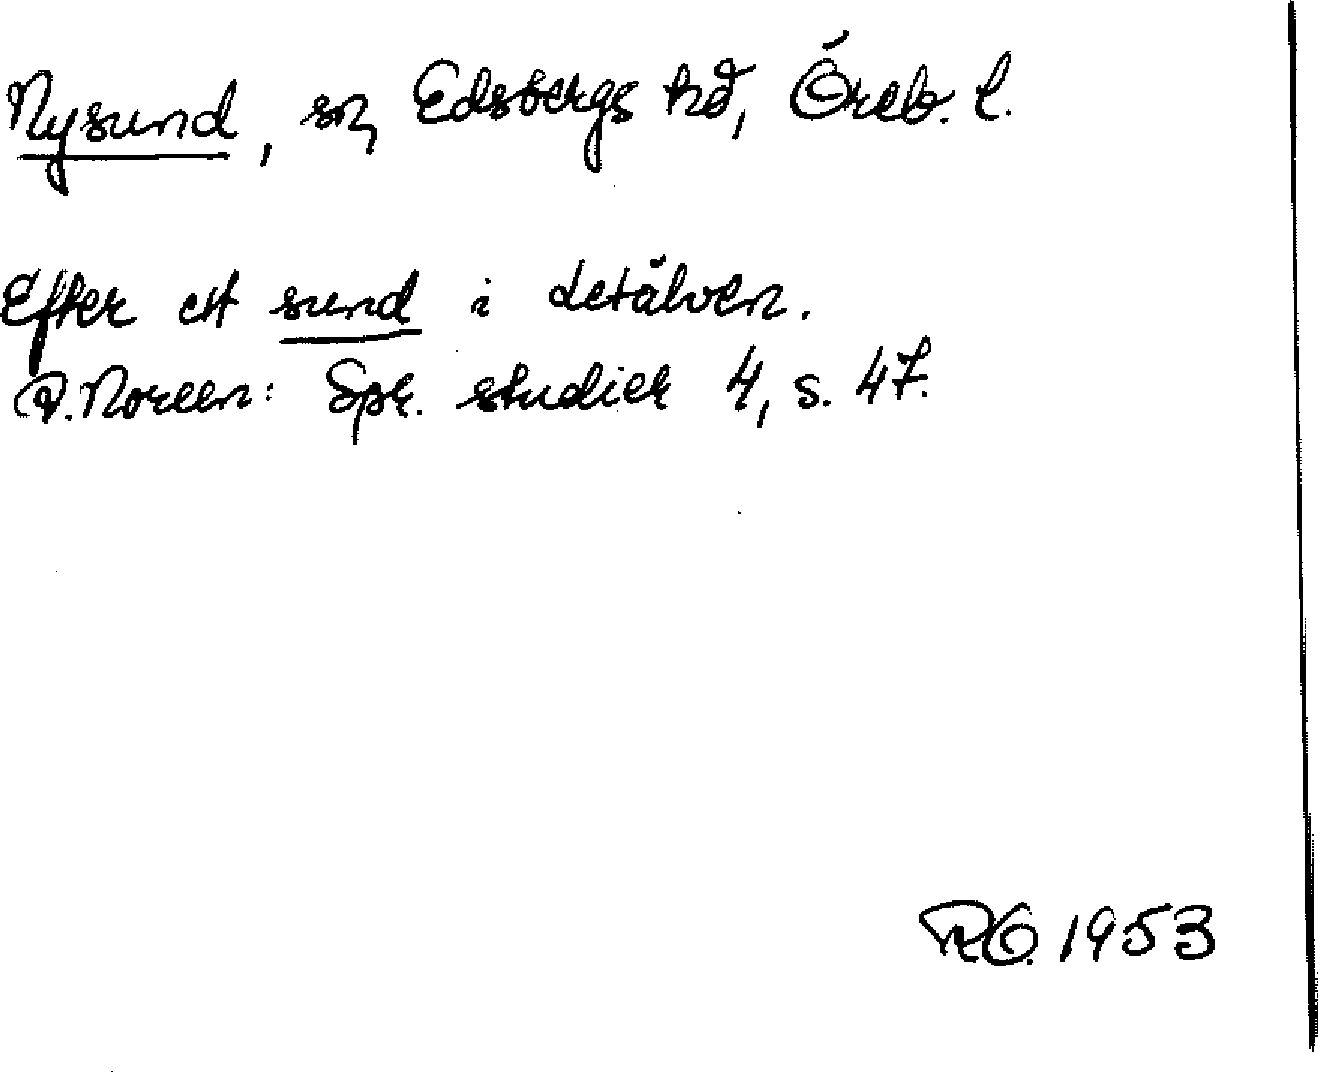 Nysund, sn, Edsbergs hd, Öreb. l.
Efter ett sund i Letälven.
A. Noreen: Spr. studier 4, s. 47.
RO. 1953